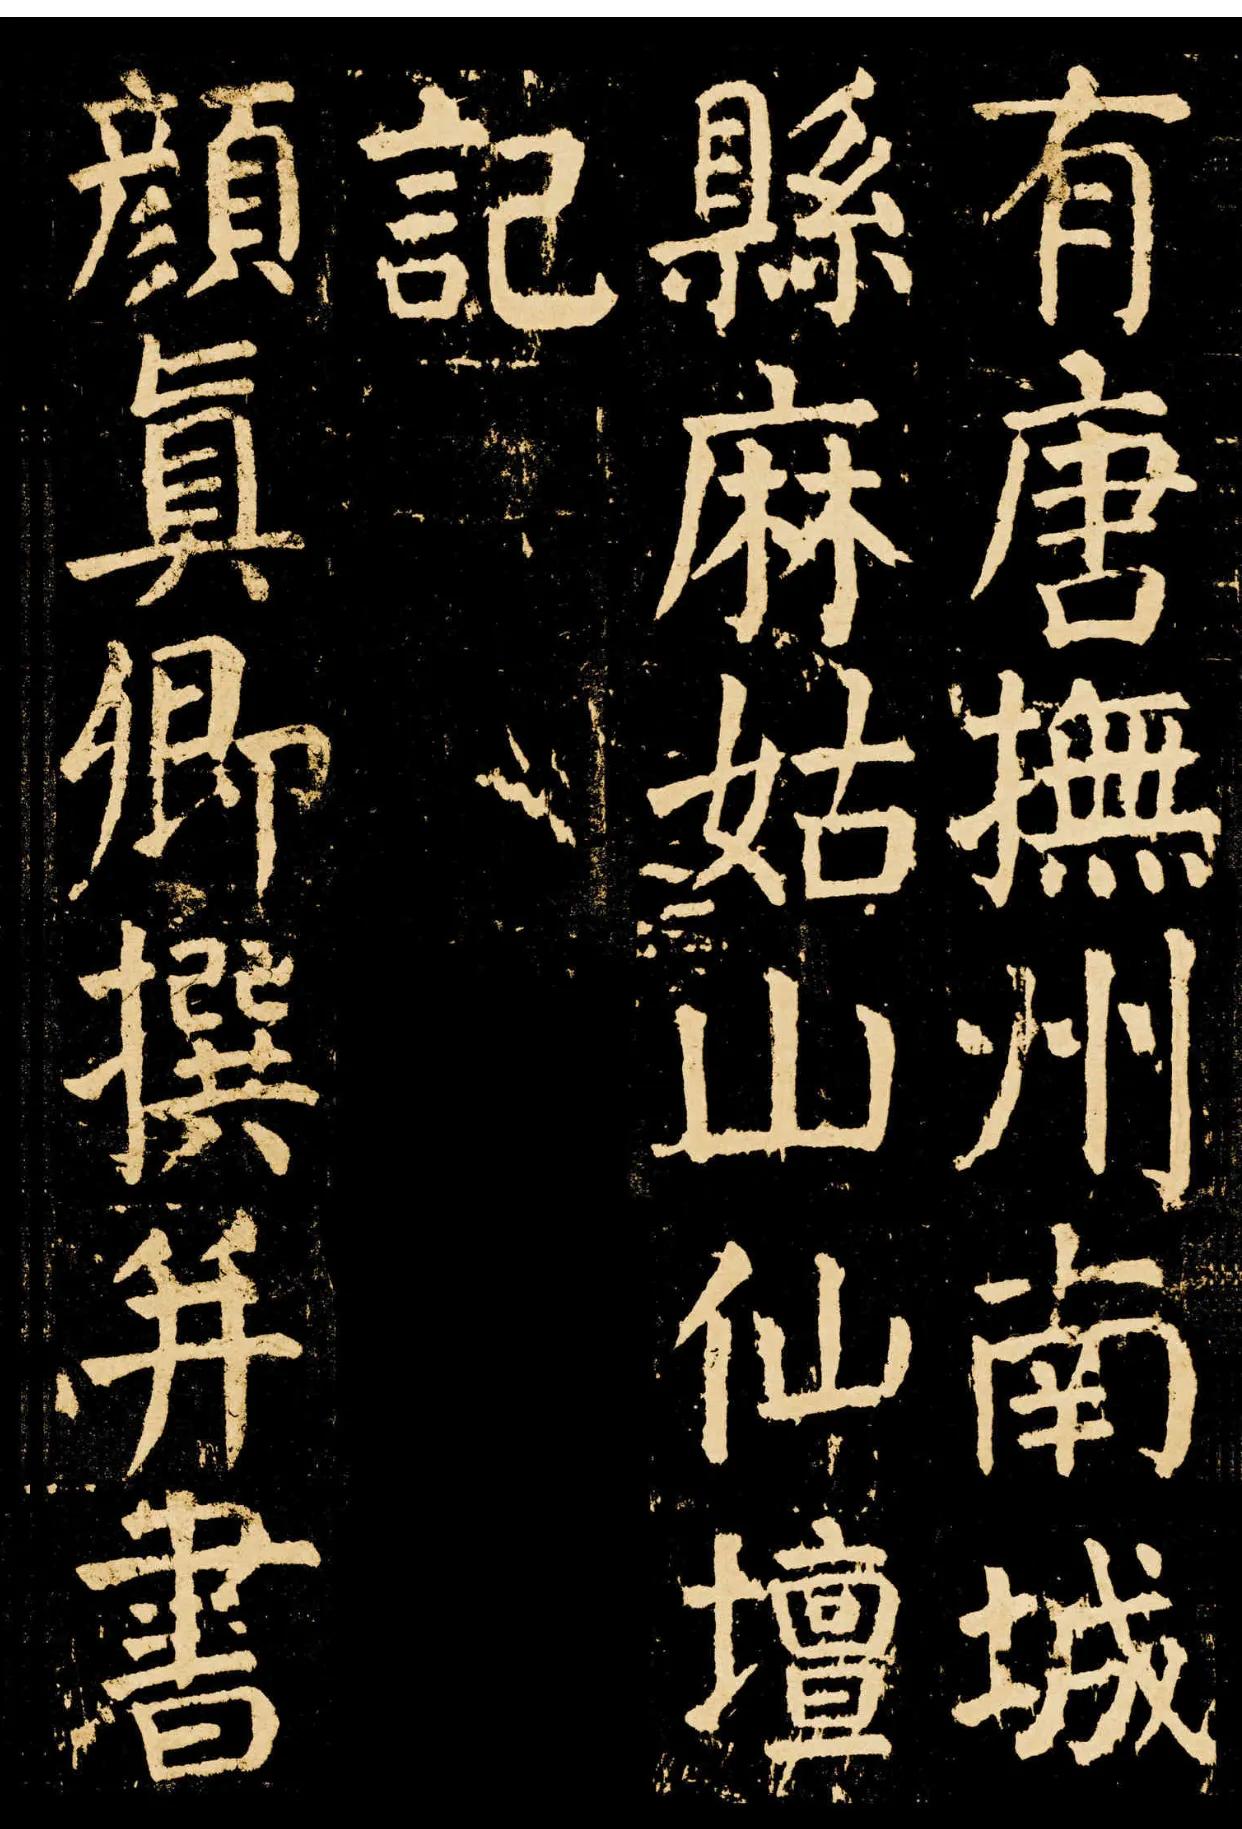 有唐撫州南城
縣麻姑山仙壇
記
顏眞卿撰并書